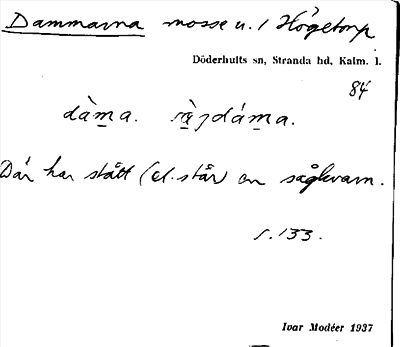 Dammarna mosse u. / Högetorp
Döderhults sn, Stranda hd, Kalm. l.
84
dàma.
Där har stått (el. står) en sågkvarn.
s. 133.
Ivar Modéer 1937